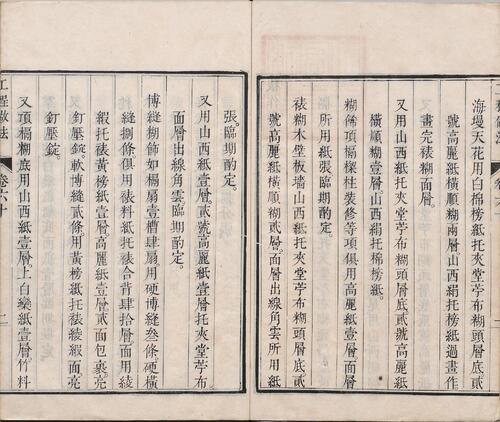 海墁天花用白棉榜紙托夾堂苧布糊頭層底貳
號高麗紙橫順糊兩層山西絹托榜紙過畫作
畫完裱糊面層
又用山西紙托夾堂苧布糊頭層底貳號高麗紙
橫順糊壹層山西絹托棉榜紙
糊飾頂槅樑柱裝修等項俱用高麗紙壹層面層
所用紙張臨期酌定
裱糊木壁板墻山西紙托夾堂苧布糊頭層底貳
號高麗紙橫順糊貳層面層出線角雲所用紙
張臨期酌定
又用山西紙壹層貳號高麗紙壹層托夾堂苧布
面層出線角雲臨期酌定
博縫糊飾如槅扇壹槽肆扇用硬博縫叁條硬橫
縫捌條俱用裱料紙托裱合背肆拾層面用綾
緞托裱黃榜紙壹層高麗紙壹層貳面包裹亮
釘壓錠軟博縫貳條用黃榜紙托裱綾緞面亮
釘壓錠
又頂槅糊底用山西紙壹層上白欒紙壹層竹料
工程做法
卷六十
二